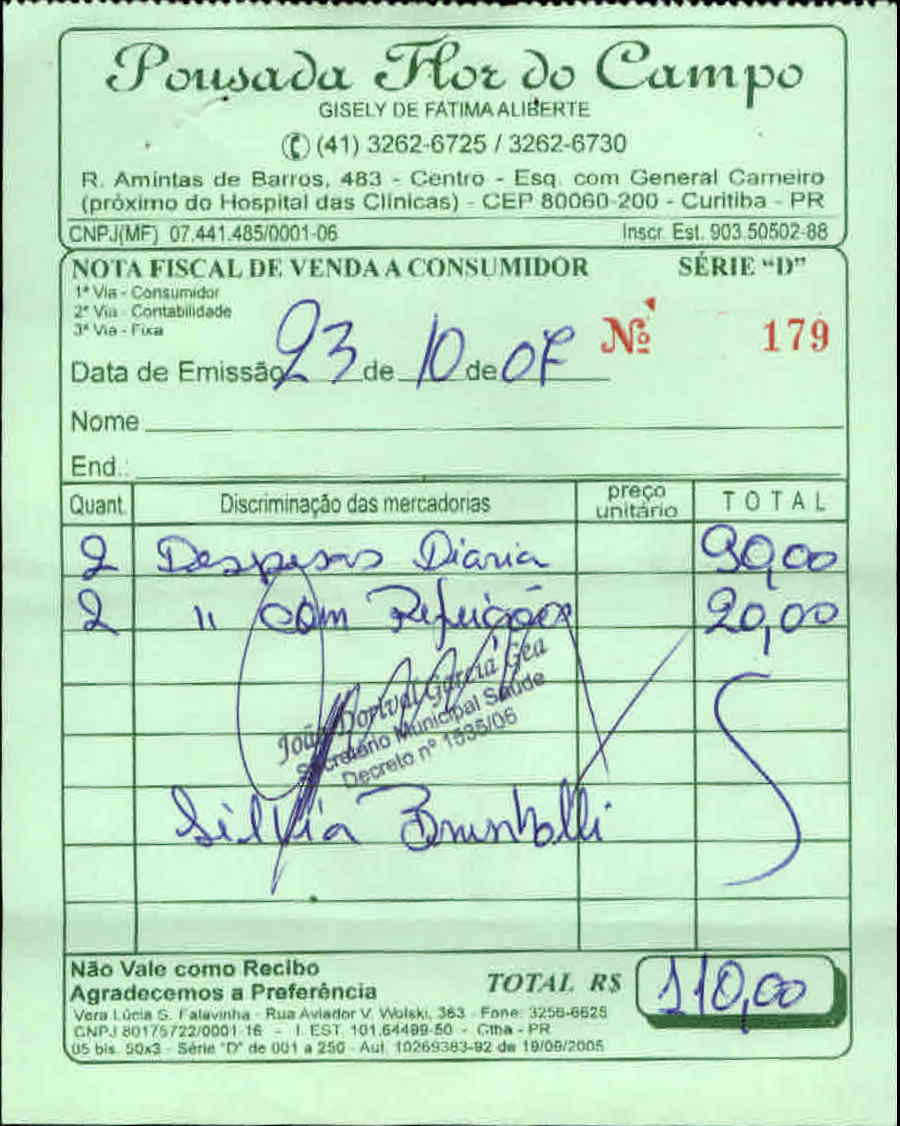 Pousada Flor do Campo
GISELY DE FÁTIMA ALIBERTE
(41) 3262-6725 / 3262-6730
R. Amintas de Barros, 483 - Centro - Esq. com General Carneiro
(próximo do Hospital das Clínicas) - CEP 80060-200 - Curitiba - PR
CNPJ(MF) 07.441.485/0001-06 Inscr. Est. 903.50502-88
NOTA FISCAL DE VENDA A CONSUMIDOR SÉRIE "D"
1ª Via - Consumidor
2ª Via - Contabilidade
3ª Via - Fixa
Nº 179
Data de Emissão 23 de 10 de 07
Nome
End.:
Quant. Discriminação das mercadorias preço unitário TOTAL
2 Despesas Diaria 90,00
2 " com Refeições 20,00
João Dorival Garcia Gea
Secretário Municipal Saúde
Decreto nº 1535/06
Silvia
Não Vale como Recibo
Agradecemos a Preferência
TOTAL R$ 110,00
Vera Lúcia S. Falavinha - Rua Aviador V. Wolski, 363 - Fone: 3256-6625
CNPJ 80175722/0001-16 - I. EST. 101.64499-50 - Ctba - PR
05 bls. 50x3 - Série "D" de 001 a 250 - Aut. 10269383-92 de 19/09/2005